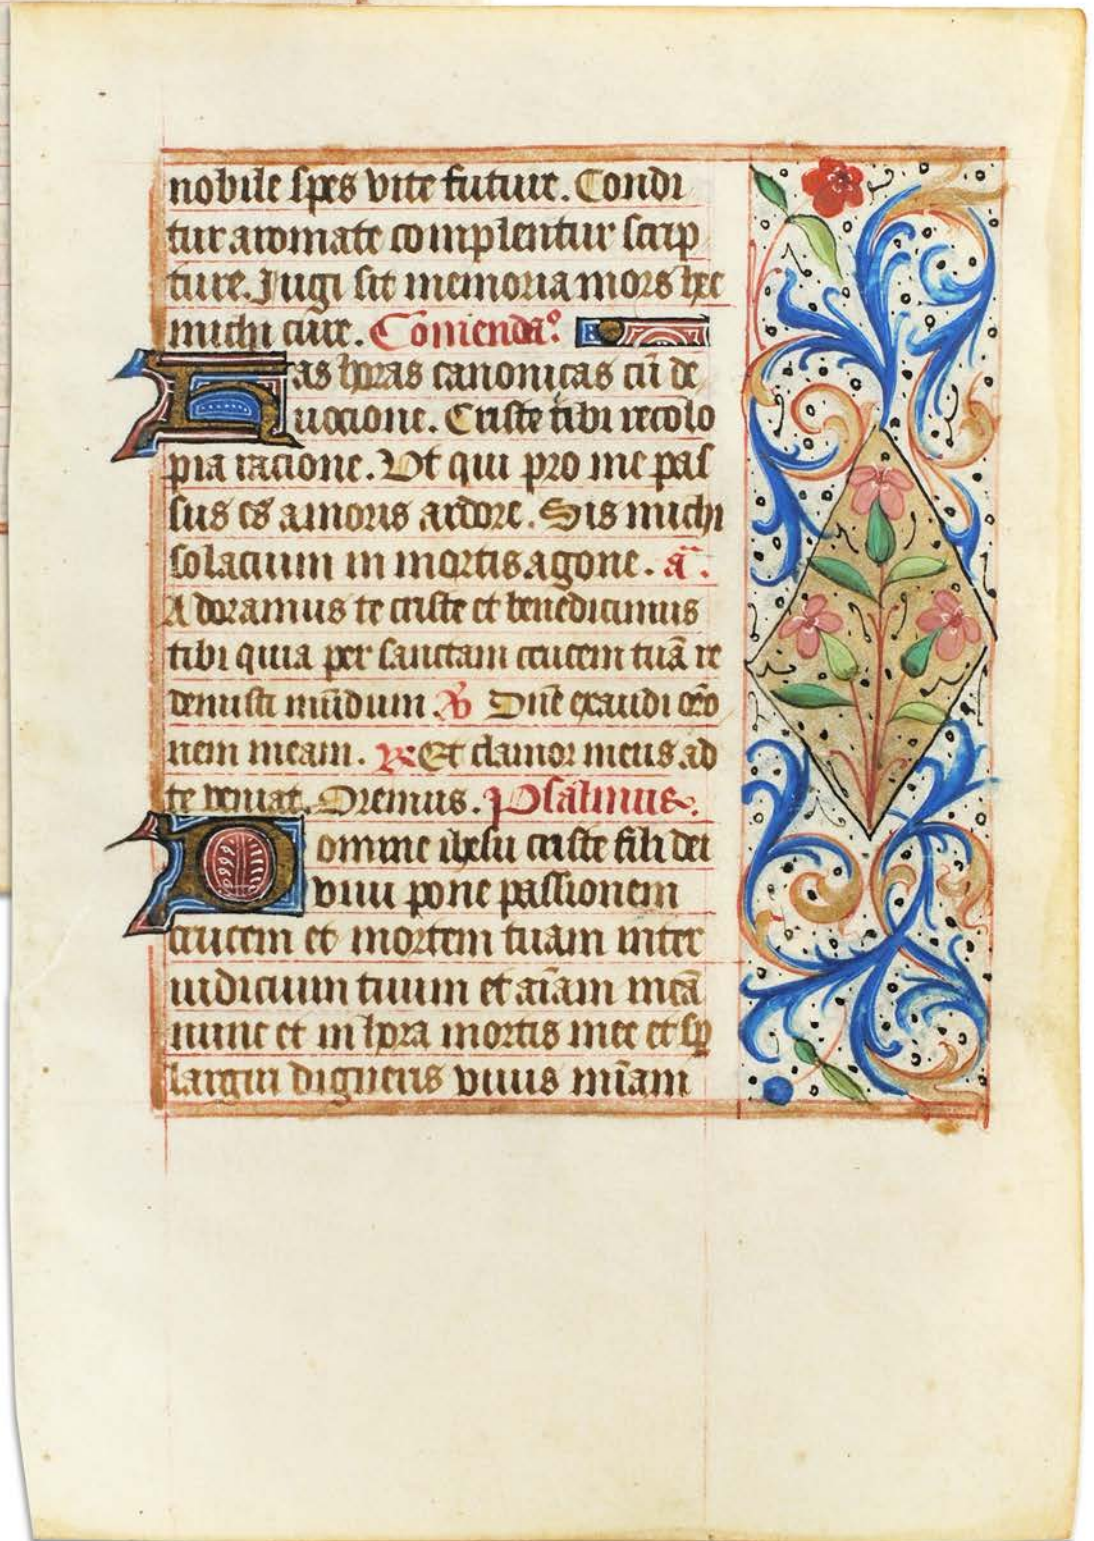 nobile spes vite future. Condi
tur aromate complentur scrip
ture. Jugi sit memoria mors hec
michi cure. Comendaº.
Has horas canonicas cū de
uocione. Criste tibi recolo
pia racione. Vt qui pro me pas
sus es amoris ardore. Sis michi
solacium in mortis agone. a̅.
Adoramus te criste et benedicimus
tibi quia per sanctam crucem tuā re
demisti mūdum ℣ Dn̄e exaudi or̄o
nem meam. ℟ Et clamor meus ad
te veniat. Oremus. Psalmus.
Domine ihesu criste fili dei
viui pone passionem
crucem et mortem tuam inter
iudicium tuum et aīam meā
nunc et in hora mortis mee et
largiri digneris viuis mīam